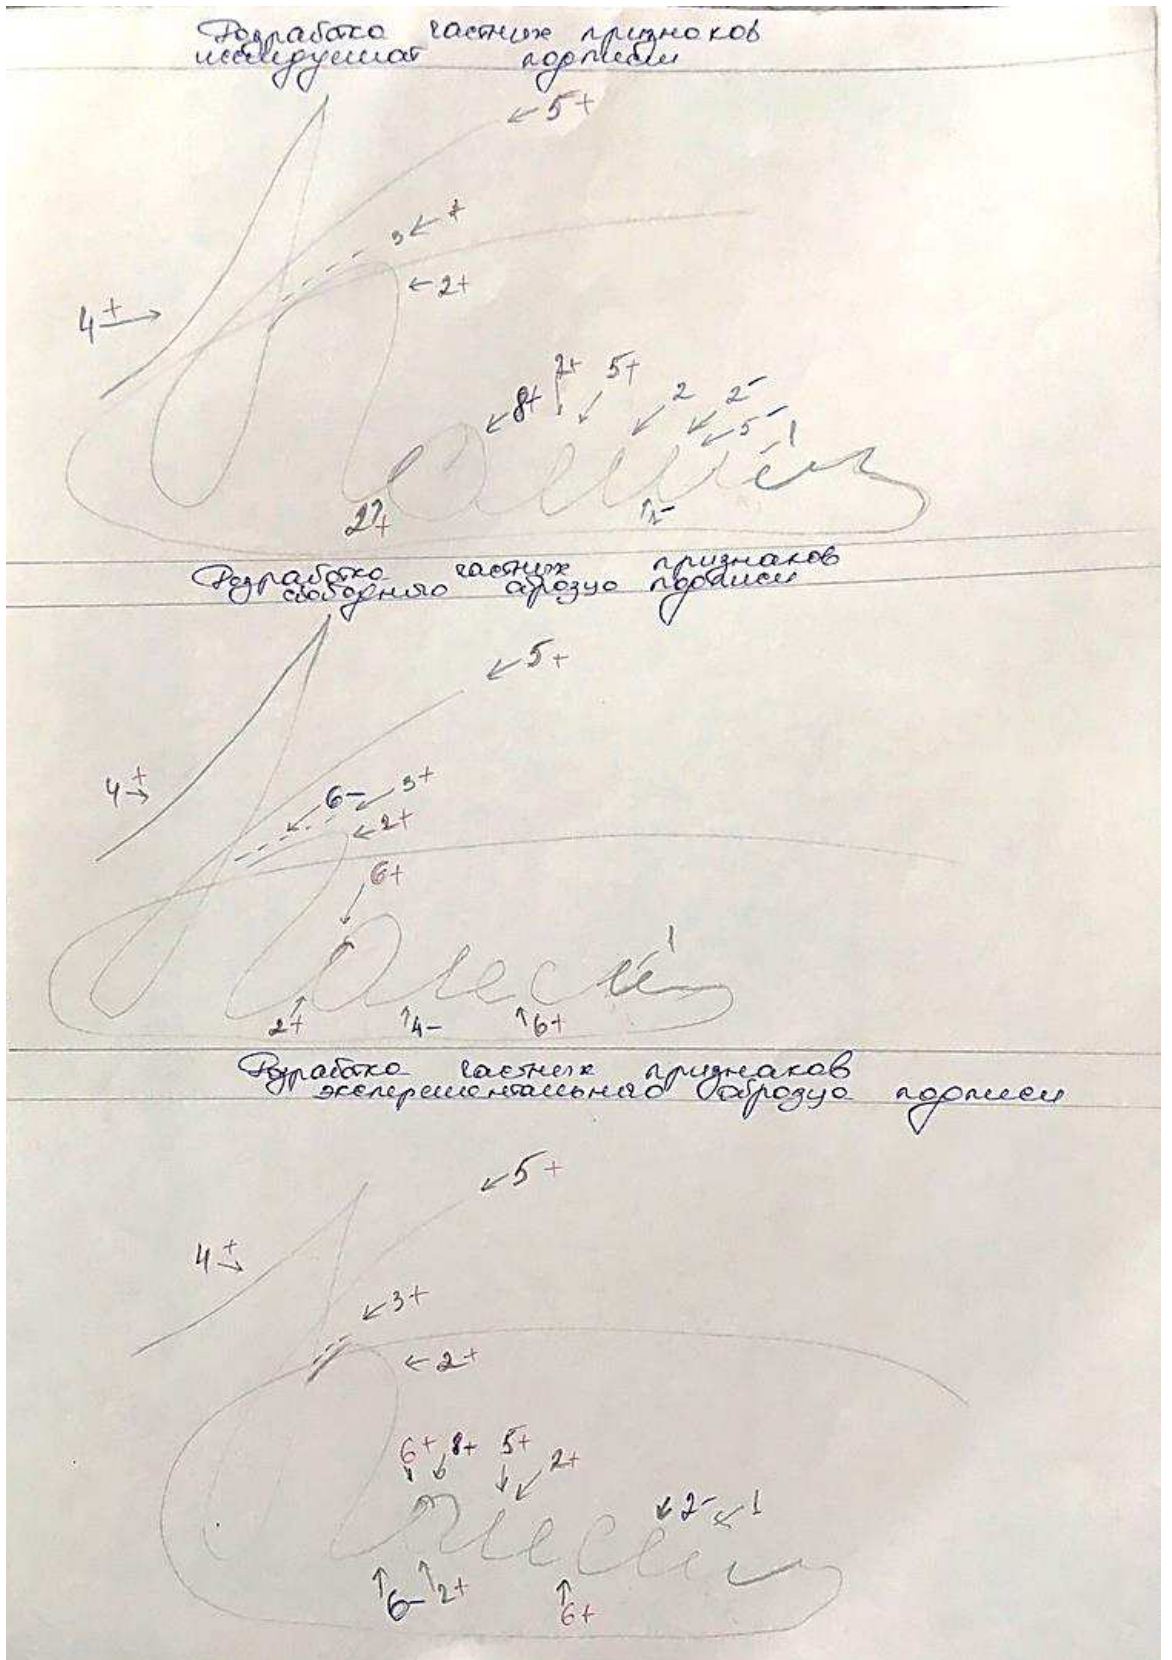 Разработка частных признаков
исследуемой подписи
← 5+
3 ← +
← 2+
4 +
2+ 5+
8+ 2 2-
5-
1
2+
1-
Разработка частных признаков
свободного образца подписи
5+
4 +
6- 3+
2+
6+
1
2+ 4- 6+
Разработка частных признаков
эксперементального образца подписи
5+
4 +
3+
← 2+
6+ 8+ 5+ 2+
2- 1
6- 2+
6+